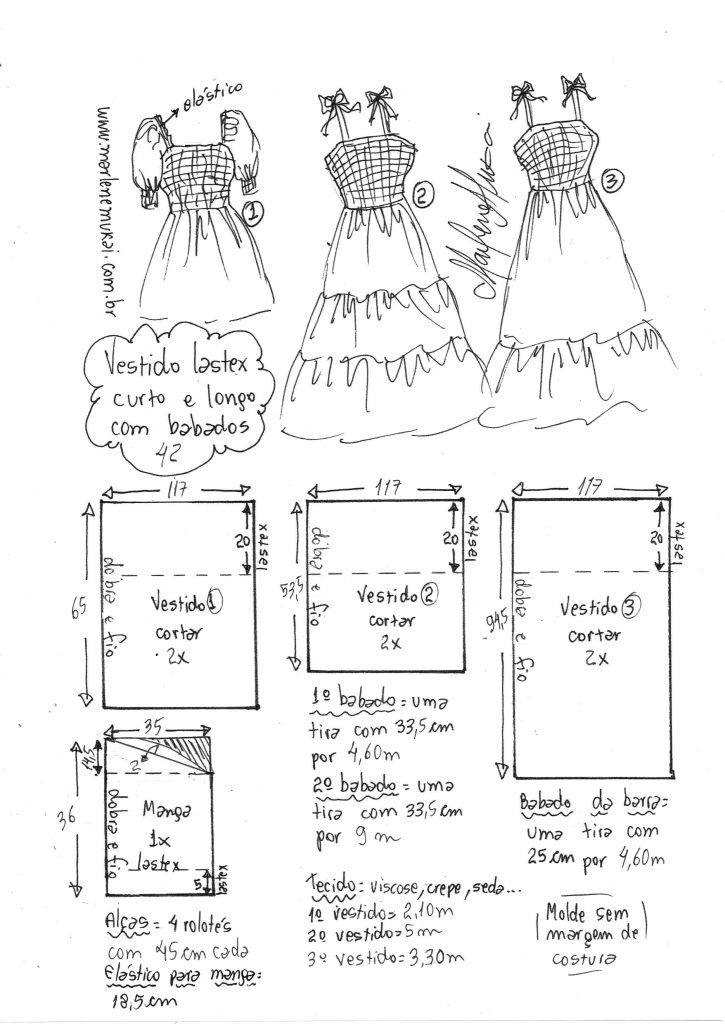 elástico
www.marlenemukai.com.br
1
2
3
Marlene Mukai
Vestido lastex
curto e longo
com babados
42
117
65
dobra e fio
20
lastex
Vestido 1
cortar
2x
117
53,5
dobra e fio
20
lastex
Vestido 2
cortar
2x
117
94,5
dobra e fio
20
lastex
Vestido 3
cortar
2x
35
14,5
2
36
dobra e fio
Manga
1x
lastex
5
lastex
Alças = 4 rolotês
com 45 cm cada
Elástico para manga:
18,5 cm
1º babado = uma
tira com 33,5 cm
por 4,60m
2º babado = uma
tira com 33,5 cm
por 9 m
Tecido: viscose, crepe, seda...
1º vestido= 2,10m
2º vestido= 5 m
3º vestido= 3,30m
Babado da barra=
uma tira com
25 cm por 4,60m
Molde sem
margem de
costura